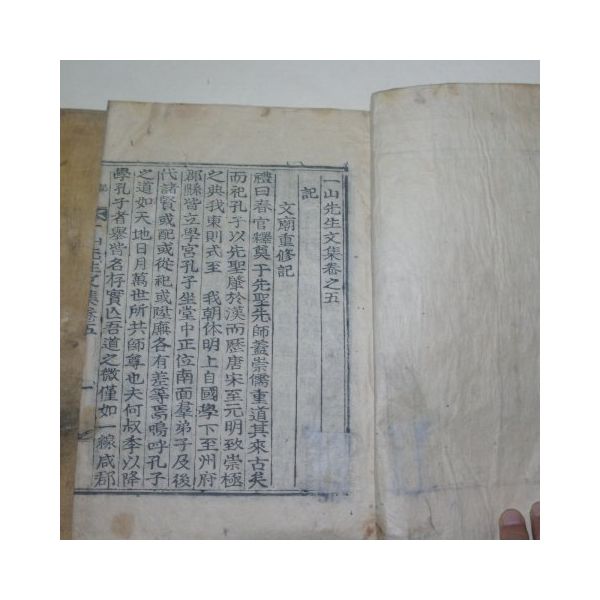 一山先生文集卷之五
記
文廟重修記
禮曰春官釋奠于先聖先師蓋崇儒重道其來古矣
而祀孔子以先聖肇於漢而歷唐宋至元明致崇極
之典我東則式至 我朝休明上自國學下至州府
郡縣皆立學宮孔子坐堂中正位南面羣弟子及後
代諸賢或配或從祀或陞廡各有差等焉嗚呼孔子
之道如天地日月萬世所共師尊也夫何叔季以降
學孔子者擧皆名存實亾吾道之微僅如一線咸郡
一山先生文集卷五
一